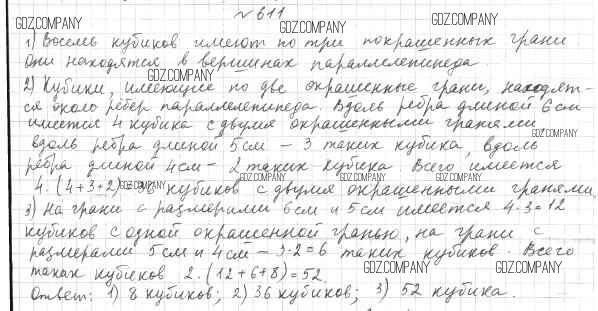 №611
GDZ.COMPANY GDZ.COMPANY GDZ.COMPANY
1) Восемь кубиков имеют по три покрашенных грани.
Они находятся в вершинах параллелепипеда.
GDZ.COMPANY
2) Кубики, имеющие по две окрашенные грани, находят-
ся около ребер параллелепипеда. Вдоль ребра длиной 6 см
имеется 4 кубика с двумя окрашенными гранями,
GDZ.COMPANY
вдоль ребра длиной 5 см – 3 таких кубика, вдоль
ребра длиной 4 см – 2 таких кубика. Всего имеется
GDZ.COMPANY GDZ.COMPANY GDZ.COMPANY GDZ.COMPANY
4·(4+3+2)=36 кубиков с двумя окрашенными гранями
3) На грани с размерами 6 см и 5 см имеется 4·3=12
кубиков с одной окрашенной гранью, на грани с
размерами 5 см и 4 см – 3·2=6 таких кубиков. Всего
таких кубиков 2·(12+6+8)=52.
GDZ.COMPANY GDZ.COMPANY
Ответ: 1) 8 кубиков; 2) 36 кубиков; 3) 52 кубика.
GDZ.COMPANY